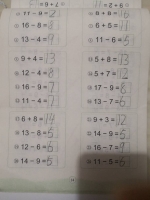 11-9=2 8+8=16
16-8=8 6+5=11
13-4=9 11-6=5
9+4=13 5+8=13
12-4=8 5+7=12
16-9=7 17-9=8
11-4=7 13-7=6
6+8=14 9+3=12
13-8=5 14-9=5
12-6=6 16-7=9
14-9=5 11-5=6